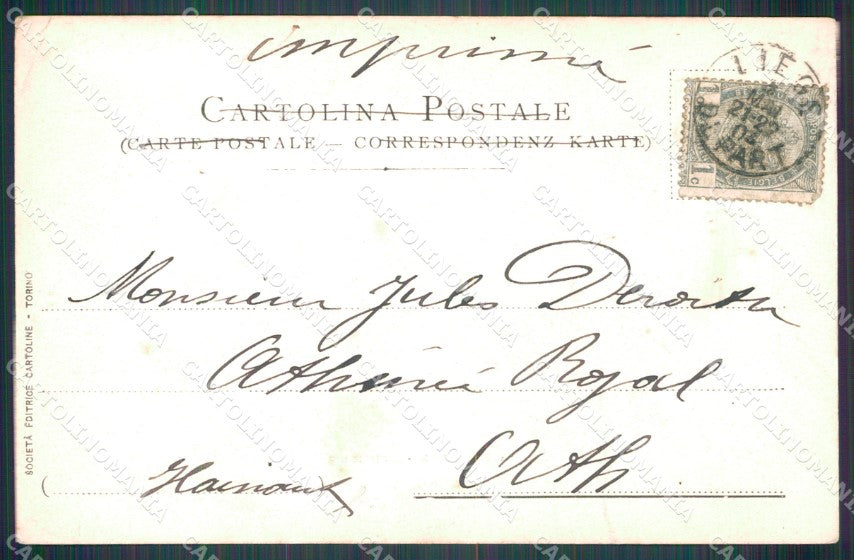 imprimé
CARTOLINA POSTALE
(CARTE POSTALE – CORRESPONDENZ KARTE)
LIEGE
21-22
DÉPART
1 c
Monsieur Jules
Athénée Royal
Ath
Hainaut
SOCIETÀ EDITRICE CARTOLINE - TORINO
CARTOLINOMANIA